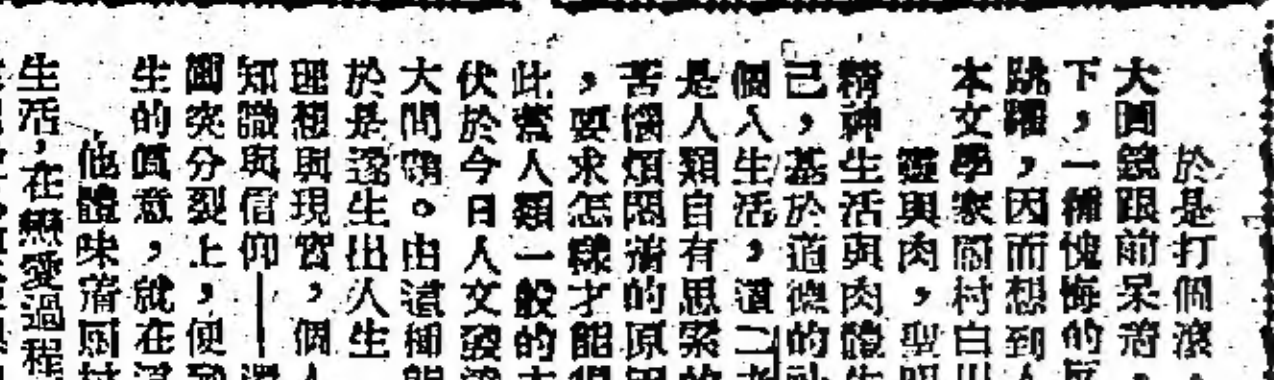 於是打個滾
大圓鏡跟前呆着
下，一種愧悔的
跳躍，因而想到
本文學家厨村白
靈與肉，聖
精神生活與肉體生
己，基於道德的
個人生活，這二
是人類自有思索的
苦惱煩悶着的原
，要求怎樣才能
此為人類一般的
伏於今日人文發
大問題。由這種
於是遂生出人生
理想與現實，個人
知識與信仰——還
間突分裂上，便
生的真意，就在
他體味着厨村
生活，在戀愛過程